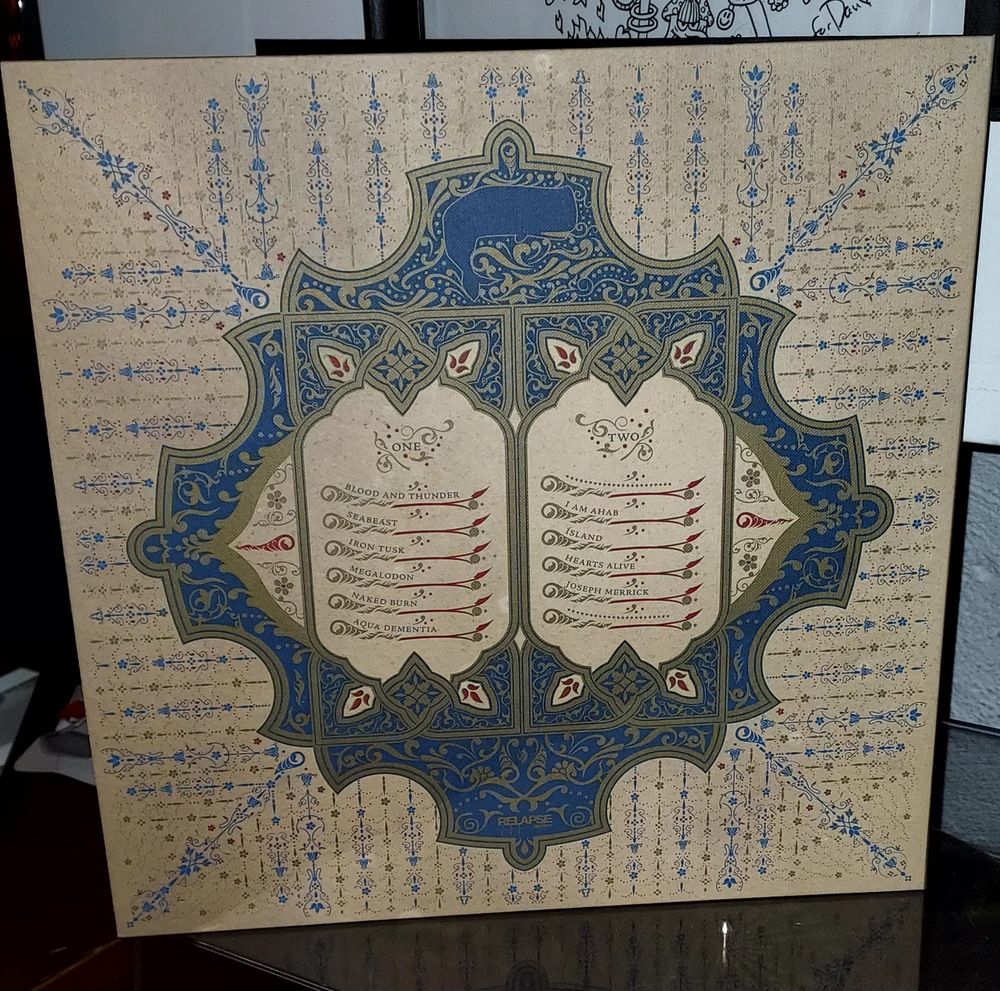 For: Dave
ONE
BLOOD AND THUNDER
SEABEAST
IRON TUSK
MEGALODON
NAKED BURN
AQUA DEMENTIA
TWO
I AM AHAB
ÍSLAND
HEARTS ALIVE
JOSEPH MERRICK
RELAPSE